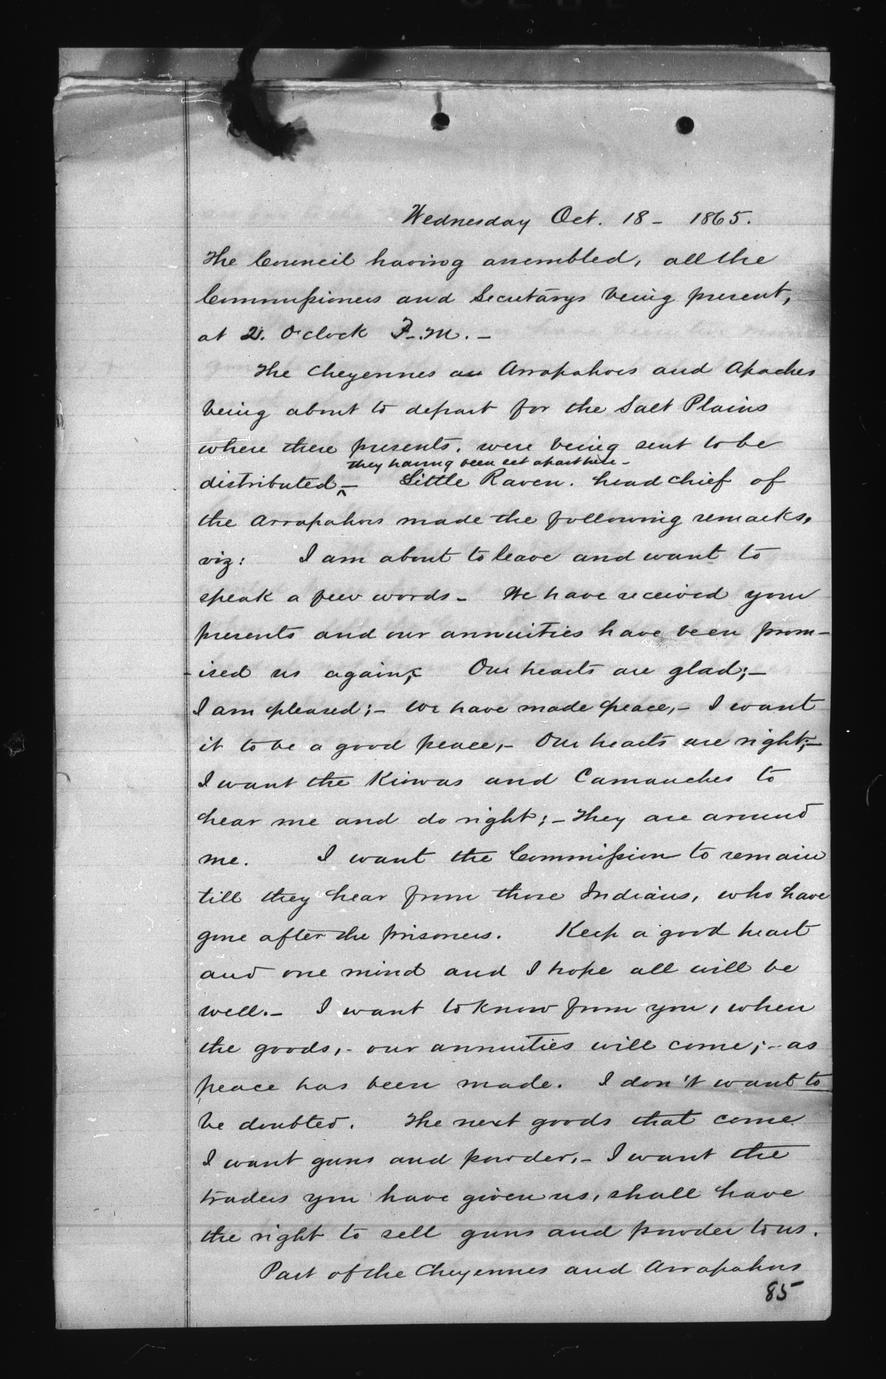 Wednesday Oct. 18 - 1865.
The Council having assembled, all the
Commissioners and Secretarys being present,
at 2. O'clock P.M. -
The Cheyennes an Arrapahoes and Apaches
being about to depart for the Salt Plains
where there presents, were being sent to be
they having been set apart here -
distributed - Little Raven. head chief of
the Arrapahos made the following remarks,
viz: I am about to leave and want to
speak a few words - We have received your
presents and our annuities have been prom-
-ised us again; Our hearts are glad; -
I am pleased; - We have made peace, - I want
it to be a good peace, - Our hearts are right; -
I want the Kiowas and Camanches to
hear me and do right; - They are around
me. I want the Commission to remain
till they hear from those Indians, who have
gone after the prisoners. Keep a good heart
and one mind and I hope all will be
well. - I want to know from you, when
the goods, - our annuities will come; - as
peace has been made. I don't want to
be doubted. The next goods that come
I want guns and powder, - I want the
traders you have given us, shall have
the right to sell guns and powder to us.
Part of the Cheyennes and Arrapahos
85